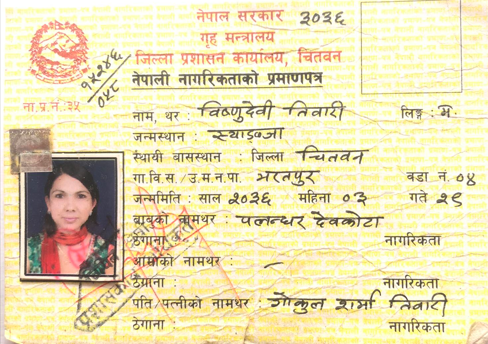 नेपाल सरकार ३०३६
गृह मन्त्रालय
जिल्ला प्रशासन कार्यालय, चितवन
नेपाली नागरिकताको प्रमाणपत्र
१५२४६
०५८
ना.प्र.नं. ३५
नाम, थर : विष्णुदेवी तिवारी लिङ्ग : म.
जन्मस्थान : स्याङ्जा
स्थायी बासस्थान : जिल्ला चितवन
गा.वि.स. / उ.म.न.पा. भरतपुर वडा नं. ०४
जन्ममिति : साल २०३६ महिना ०३ गते २९
बाबुको नामथर : देवकोटा
ठेगाना : नागरिकता
आमाको नामथर : -
ठेगाना : नागरिकता
पति पत्नीको नामथर : शर्मा तिवारी
ठेगाना : नागरिकता